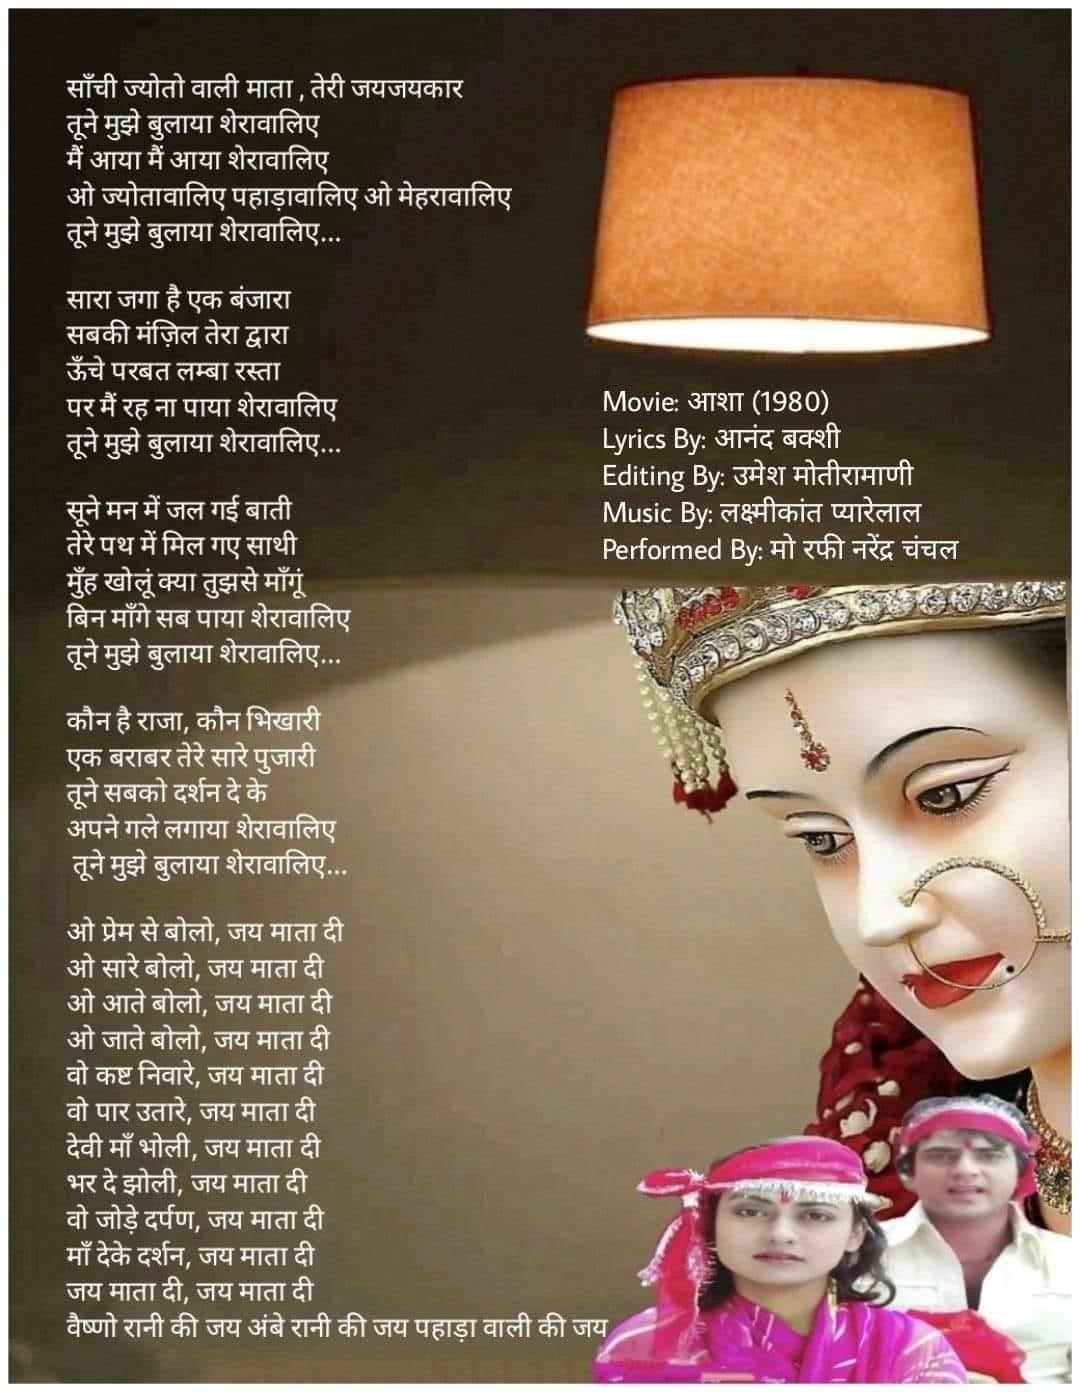 साँची ज्योतो वाली माता , तेरी जयजयकार
तूने मुझे बुलाया शेरावालिए
मैं आया मैं आया शेरावालिए
ओ ज्योतावालिए पहाड़ावालिए ओ मेहरावालिए
तूने मुझे बुलाया शेरावालिए...

सारा जगा है एक बंजारा
सबकी मंज़िल तेरा द्वारा
ऊँचे परबत लम्बा रस्ता
पर मैं रह ना पाया शेरावालिए
तूने मुझे बुलाया शेरावालिए...

सूने मन में जल गई बाती
तेरे पथ में मिल गए साथी
मुँह खोलूं क्या तुझसे माँगूं
बिन माँगे सब पाया शेरावालिए
तूने मुझे बुलाया शेरावालिए...

कौन है राजा, कौन भिखारी
एक बराबर तेरे सारे पुजारी
तूने सबको दर्शन दे के
अपने गले लगाया शेरावालिए
तूने मुझे बुलाया शेरावालिए...

ओ प्रेम से बोलो, जय माता दी
ओ सारे बोलो, जय माता दी
ओ आते बोलो, जय माता दी
ओ जाते बोलो, जय माता दी
वो कष्ट निवारे, जय माता दी
वो पार उतारे, जय माता दी
देवी माँ भोली, जय माता दी
भर दे झोली, जय माता दी
वो जोड़े दर्पण, जय माता दी
माँ देके दर्शन, जय माता दी
जय माता दी, जय माता दी
वैष्णो रानी की जय अंबे रानी की जय पहाड़ा वाली की जय

Movie: आशा (1980)
Lyrics By: आनंद बक्शी
Editing By: उमेश मोतीरामाणी
Music By: लक्ष्मीकांत प्यारेलाल
Performed By: मो रफी नरेंद्र चंचल